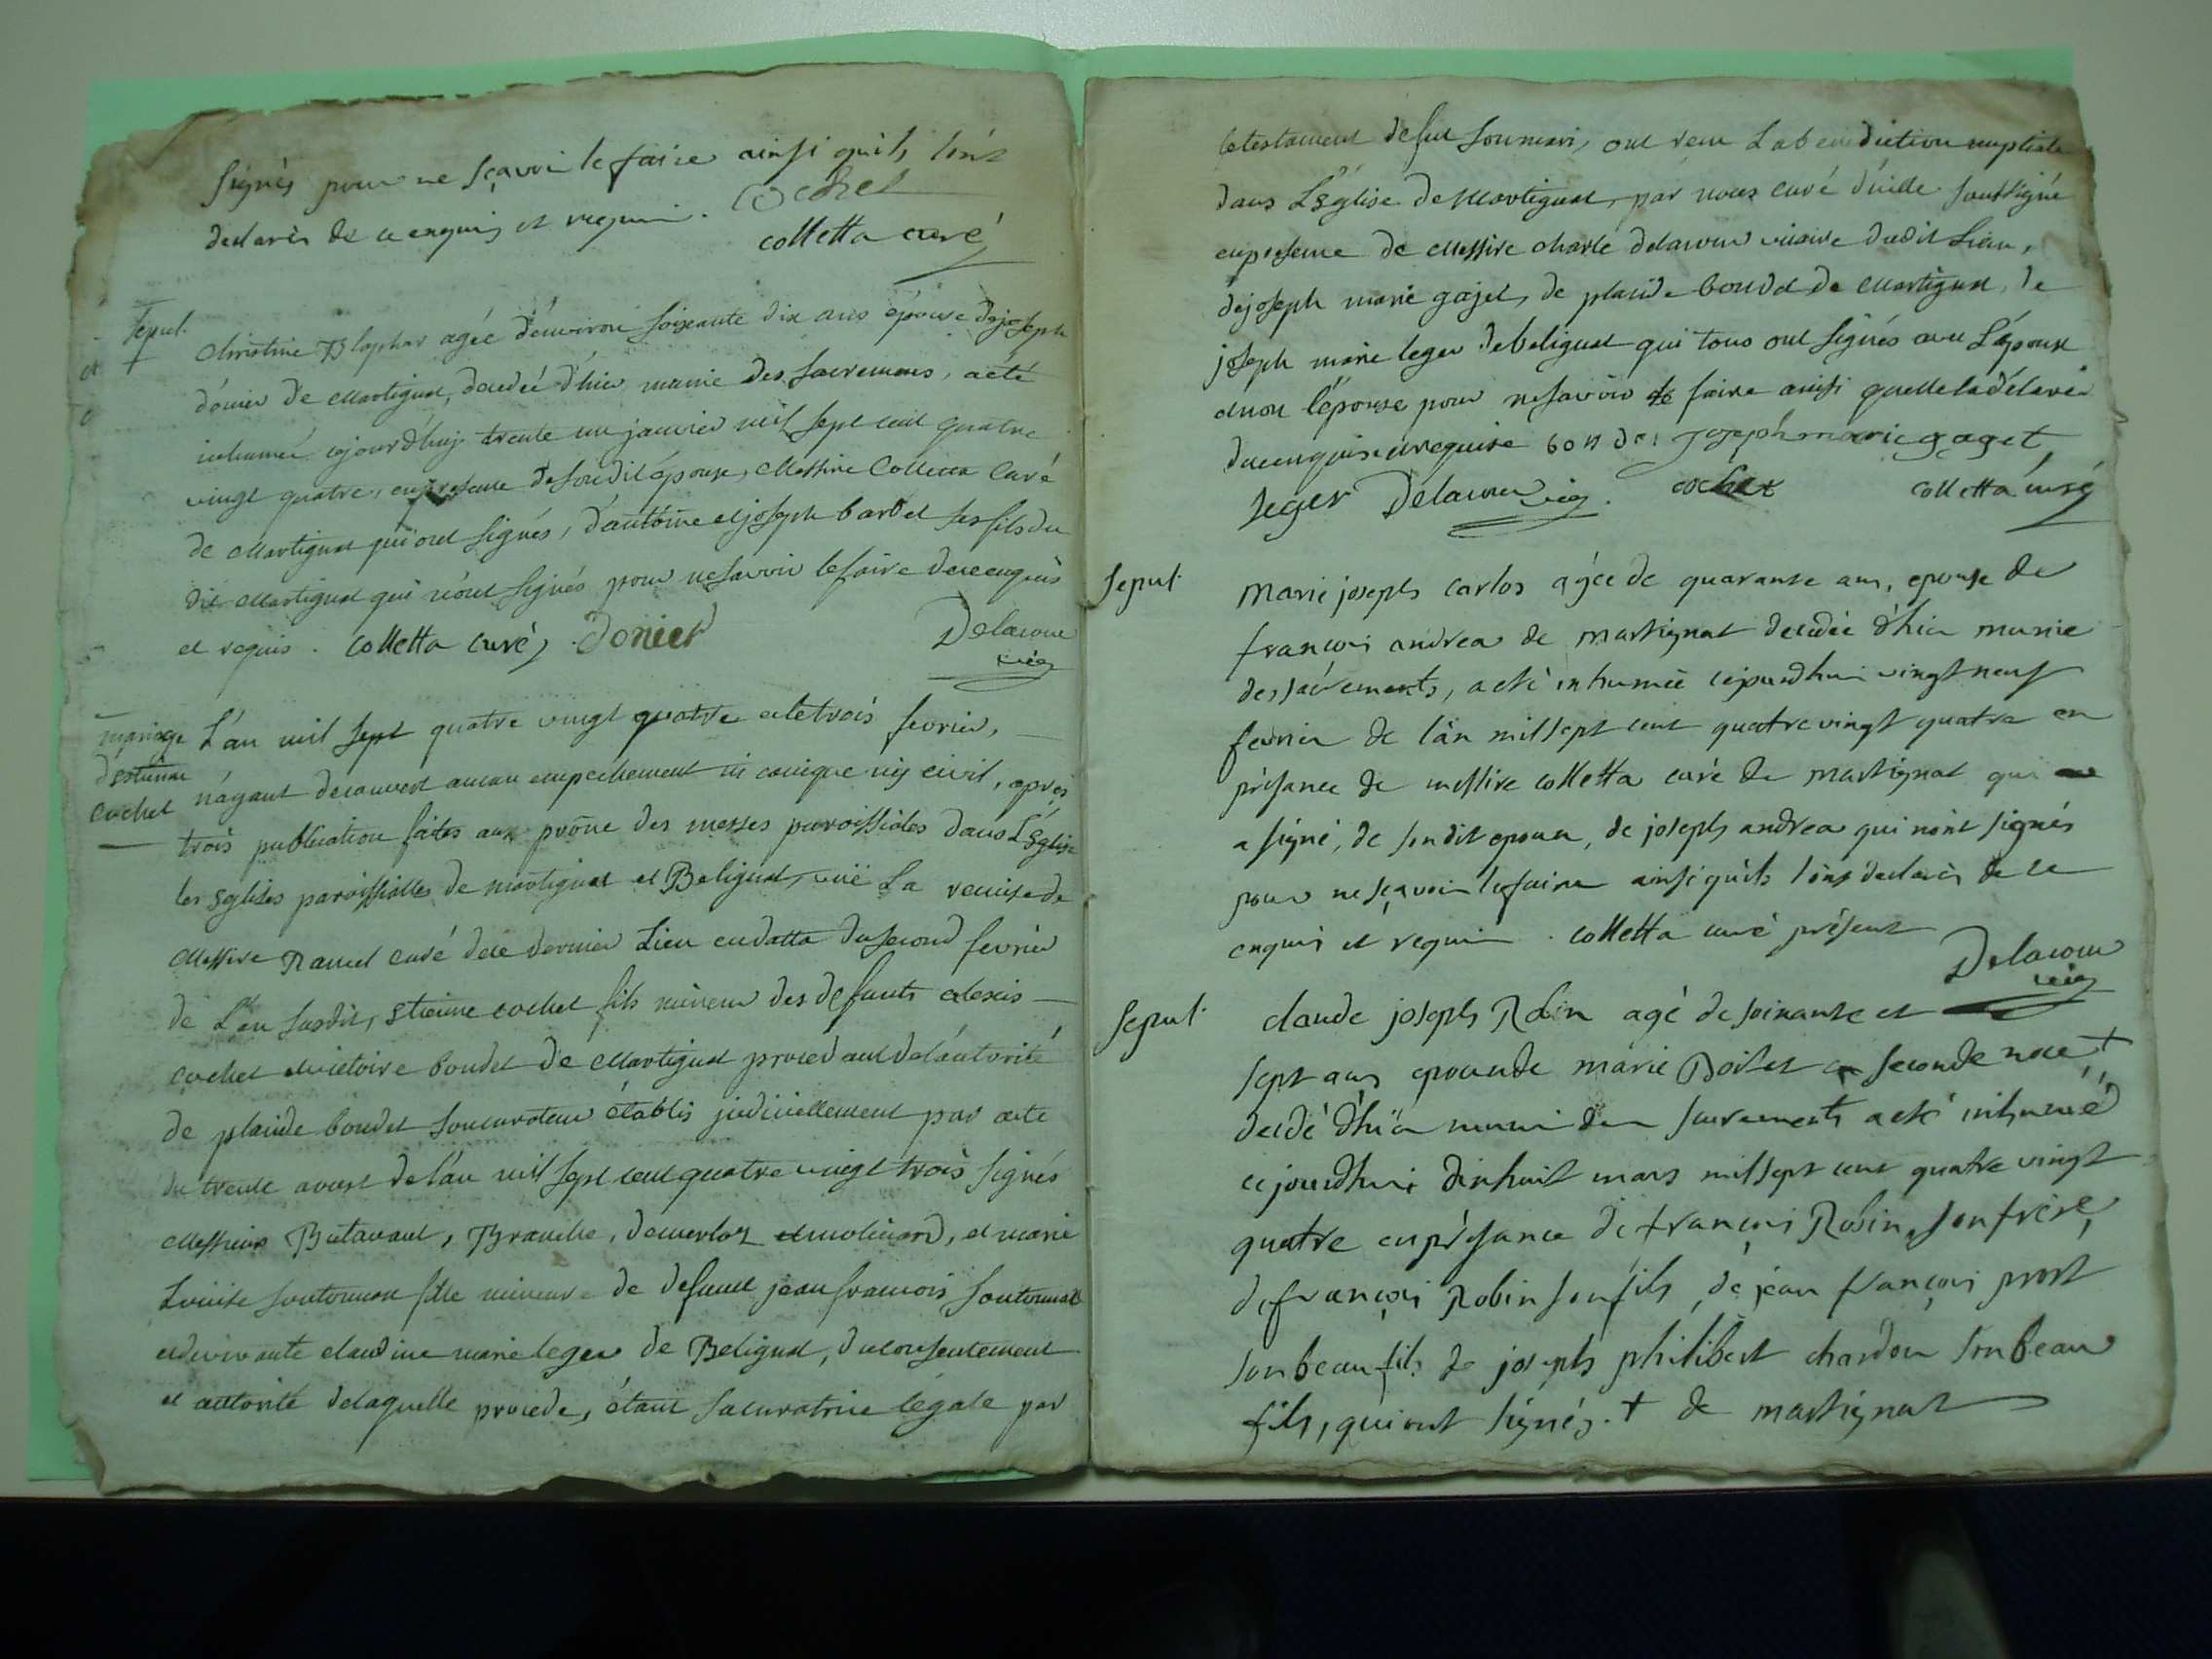 signés pour ne sçavoir le faire ainsi quils l'ont
declarés de ce enquis et requis. Cochet
colletta curé
sepul.
christine Blaphar agée d'environ soixante dix ans épouse de joseph
donier de Martignat, decedée d'hier munie des sacremens, a eté
inhumée cejourd'huy trente un janvier mil sept cent quatre
vingt quatre, en presence de son dit époux, Messire Colletta Curé
de Martignat qui ont signés, d'antoine et joseph barbet ses fils du
dit Martignat qui n'ont signés pour ne savoir le faire de ce enquis
et requis. colletta curé, Donier Delacour
vic
mariage
d'estienne
cochet
L'an mil sept quatre vingt quatre et le trois fevrier,
n'ayant decouvert aucun empechement ni canique ny civil, après
trois publication faites aux prône des messes paroissiales dans L'Eglise
les eglises paroissialles de martignat et Beligнat, vüe La remise de
Messire Ramel curé de ce dernier Lieu en datte du second fevrier
de L'an susdit, etienne cochet fils mineur des defunts alexis
cochet et victoire boudet de Martignat procedant de l'autorité
de placide boudet son curateur établis judiciellement par acte
du trente aoust de l'an mil sept cent quatre vingt trois signés
Messieurs Butavant, Branche, demerloz et molinard, et marie
Louise soutonnax fille mineure de defunt jean francois soutonnax
et de vivante claudine marie leger de Beligнat, du consentement
et autorité de laquelle procede, étant sa curatrice légale par
le testament de feu son mari, ont reçu La benediction nuptiale
dans L'Eglise de Martignat, par nous curé d'icelle soussigné
en presence de Messire charle delacour vicaire du dit Lieu,
de joseph marie gajet, de placide boudet de Martignat, de
joseph marie leger de beligнat qui tous ont signés avec L'époux
et non l'épouse pour ne savoir le faire ainsi quelle la déclaré
de ce enquise et requise boudet joseph marie gaget
leger Delacour vic. cochet colletta curé
sepul.
marie joseph carlos agée de quarante ans, epouse de
françois andrea de martignat decedée d'hier munie
des sacrements, a eté inhumée cejourdhui vingt neuf
fevrier de l'an mil sept cent quatre vingt quatre en
présance de messire colletta curé de martignat qui
a signé, de son dit epoux, de joseph andrea qui n'ont signés
pour ne sçavoir le faire ainsi quils l'ont declarés de ce
enquis et requis. colletta curé présent
Delacour
vic
sepul.
claude joseph Robin agé de soixante et
sept ans epoux de marie Poilet en seconde noce +
decedé d'hier muni des sacrements a eté inhumé
cejourdhui dixhuit mars mil sept cent quatre vingt
quatre en présance de françois Robin son frère,
de françois Robin son fils, de jean françois prost
son beau fils de joseph philibert chardon son beau
fils, qui ont signés. + de martignat